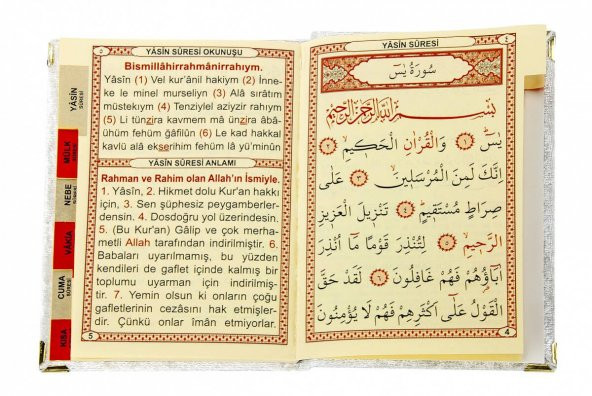 ٥
YÂSİN SÛRESİ OKUNUŞU
Bismillâhirrahmânirrahıym.
Yâsîn (1) Vel kur'ânil hakiym (2) İnne-
ke le minel murseliyn (3) Alâ sırâtım
müstekıym (4) Tenziylel aziyzir rahıym
(5) Li tünzira kavmem mâ ünzira âbâ-
ühüm fehüm ğâfilûn (6) Le kad hakkal
kavlü alâ ekserihim fehüm lâ yü'minûn
YÂSİN SÛRESİ ANLAMI
Rahman ve Rahim olan Allah'ın İsmiyle.
1. Yâsîn, 2. Hikmet dolu Kur'an hakkı
için, 3. Sen şüphesiz peygamberler-
densin. 4. Dosdoğru yol üzerindesin.
5. (Bu Kur'an) Gâlip ve çok merha-
metli Allah tarafından indirilmiştir. 6.
Babaları uyarılmamış, bu yüzden
kendileri de gaflet içinde kalmış bir
toplumu uyarman için indirilmiş-
tir. 7. Yemin olsun ki onların çoğu
gafletlerinin cezasını hak etmişler-
dir. Çünkü onlar îmân etmiyorlar.
5
YÂSİN SÛRESİ
MÜLK
NEBE
VÂKIA
CUMA SÛRESİ
KISA
YÂSİN SÛRESİ
٤
سُورَةُ يٰسٓ
بِسْمِ اللّٰهِ الرَّحْمٰنِ الرَّحِيمِ
يٰسٓ ﴿١﴾ وَالْقُرْاٰنِ الْحَكِيمِ ﴿٢﴾
اِنَّكَ لَمِنَ الْمُرْسَلِينَ ﴿٣﴾ عَلٰى
صِرَاطٍ مُسْتَقِيمٍ ﴿٤﴾ تَنْزِيلَ الْعَزِيزِ
الرَّحِيمِ ﴿٥﴾ لِتُنْذِرَ قَوْمًا مَٓا اُنْذِرَ
اٰبَٓاؤُ۬هُمْ فَهُمْ غَافِلُونَ ﴿٦﴾ لَقَدْ حَقَّ
الْقَوْلُ عَلٰٓى اَكْثَرِهِمْ فَهُمْ لَا يُؤْمِنُونَ
4